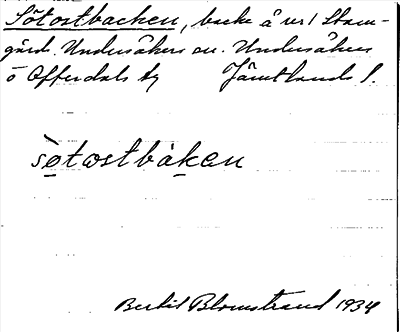 Sötostbacken, backe å nr 1 Stam-
gärd. Undersåkers sn. Undersåkers
o Offerdals tg Jämtlands l.
sòtostbàken
Bertil Blomstrand 1934